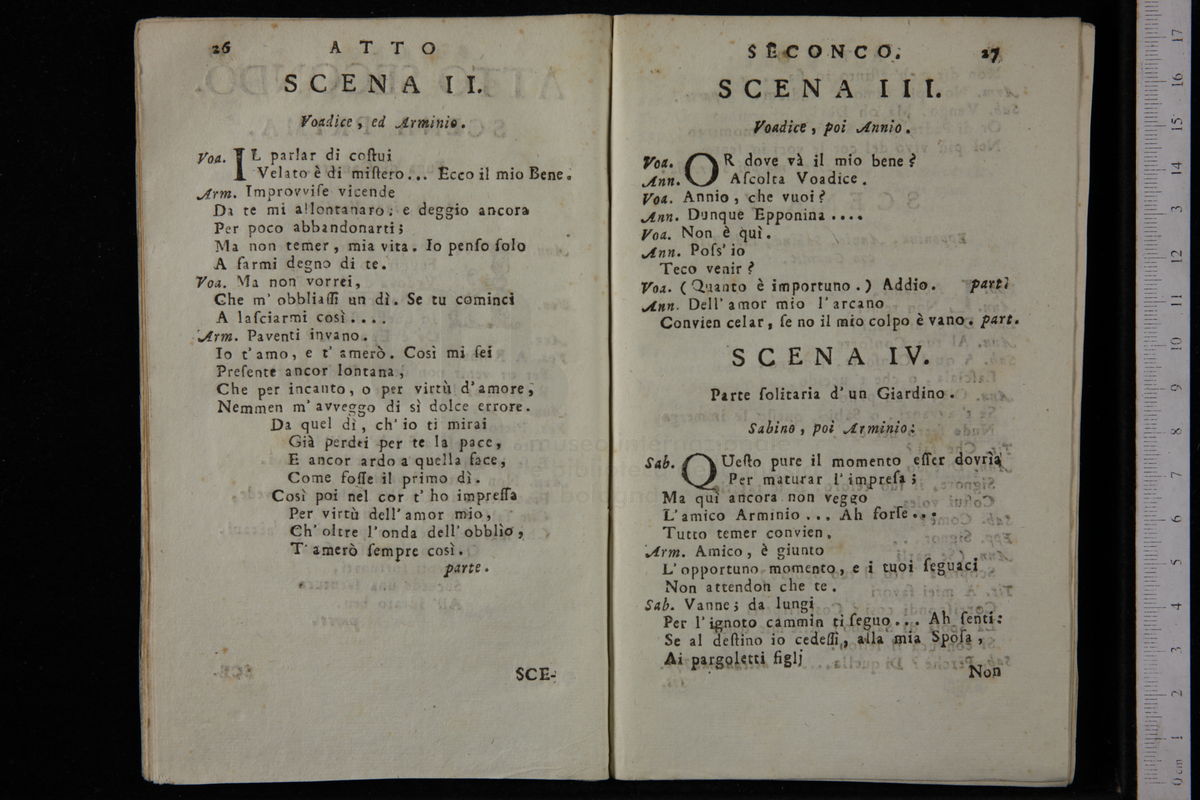 26 ATTO
SCENA II.
Voadice, ed Arminio.
Voa. IL parlar di coſtui
Velato è di miſtero... Ecco il mio Bene.
Arm. Improvviſe vicende
Da te mi allontanaro: e deggio ancora
Per poco abbandonarti;
Ma non temer, mia vita. Io penſo ſolo
A farmi degno di te.
Voa. Ma non vorrei,
Che m' obbliaſſi un dì. Se tu cominci
A laſciarmi così....
Arm. Paventi invano.
Io t' amo, e t' amerò. Così mi ſei
Preſente ancor lontana,
Che per incanto, o per virtù d'amore,
Nemmen m' avveggo di sì dolce errore.
Da quel dì, ch' io ti mirai
Già perdei per te la pace,
E ancor ardo a quella face,
Come foſſe il primo dì.
Così poi nel cor t' ho impreſſa
Per virtù dell' amor mio,
Ch' oltre l'onda dell' obblìo,
T' amerò ſempre così.
parte.
SCE-
SECONCO. 27
SCENA III.
Voadice, poi Annio.
Voa. OR dove và il mio bene?
Ann. Aſcolta Voadice.
Voa. Annio, che vuoi?
Ann. Dunque Epponina....
Voa. Non è quì.
Ann. Poſs' io
Teco venir?
Voa. (Quanto è importuno.) Addio. parti
Ann. Dell' amor mio l' arcano
Convien celar, ſe no il mio colpo è vano. part.
SCENA IV.
Parte ſolitaria d' un Giardino.
Sabino, poi Arminio:
Sab. QUeſto pure il momento eſſer dovrìa
Per maturar l' impreſa;
Ma quì ancora non veggo
L'amico Arminio... Ah forſe...
Tutto temer convien.
Arm. Amico, è giunto
L' opportuno momento, e i tuoi ſeguaci
Non attendon che te.
Sab. Vanne; da lungi
Per l' ignoto cammin ti ſeguo... Ah ſenti:
Se al deſtino io cedeſſi, alla mia Spoſa,
Ai pargoletti figlj
Non